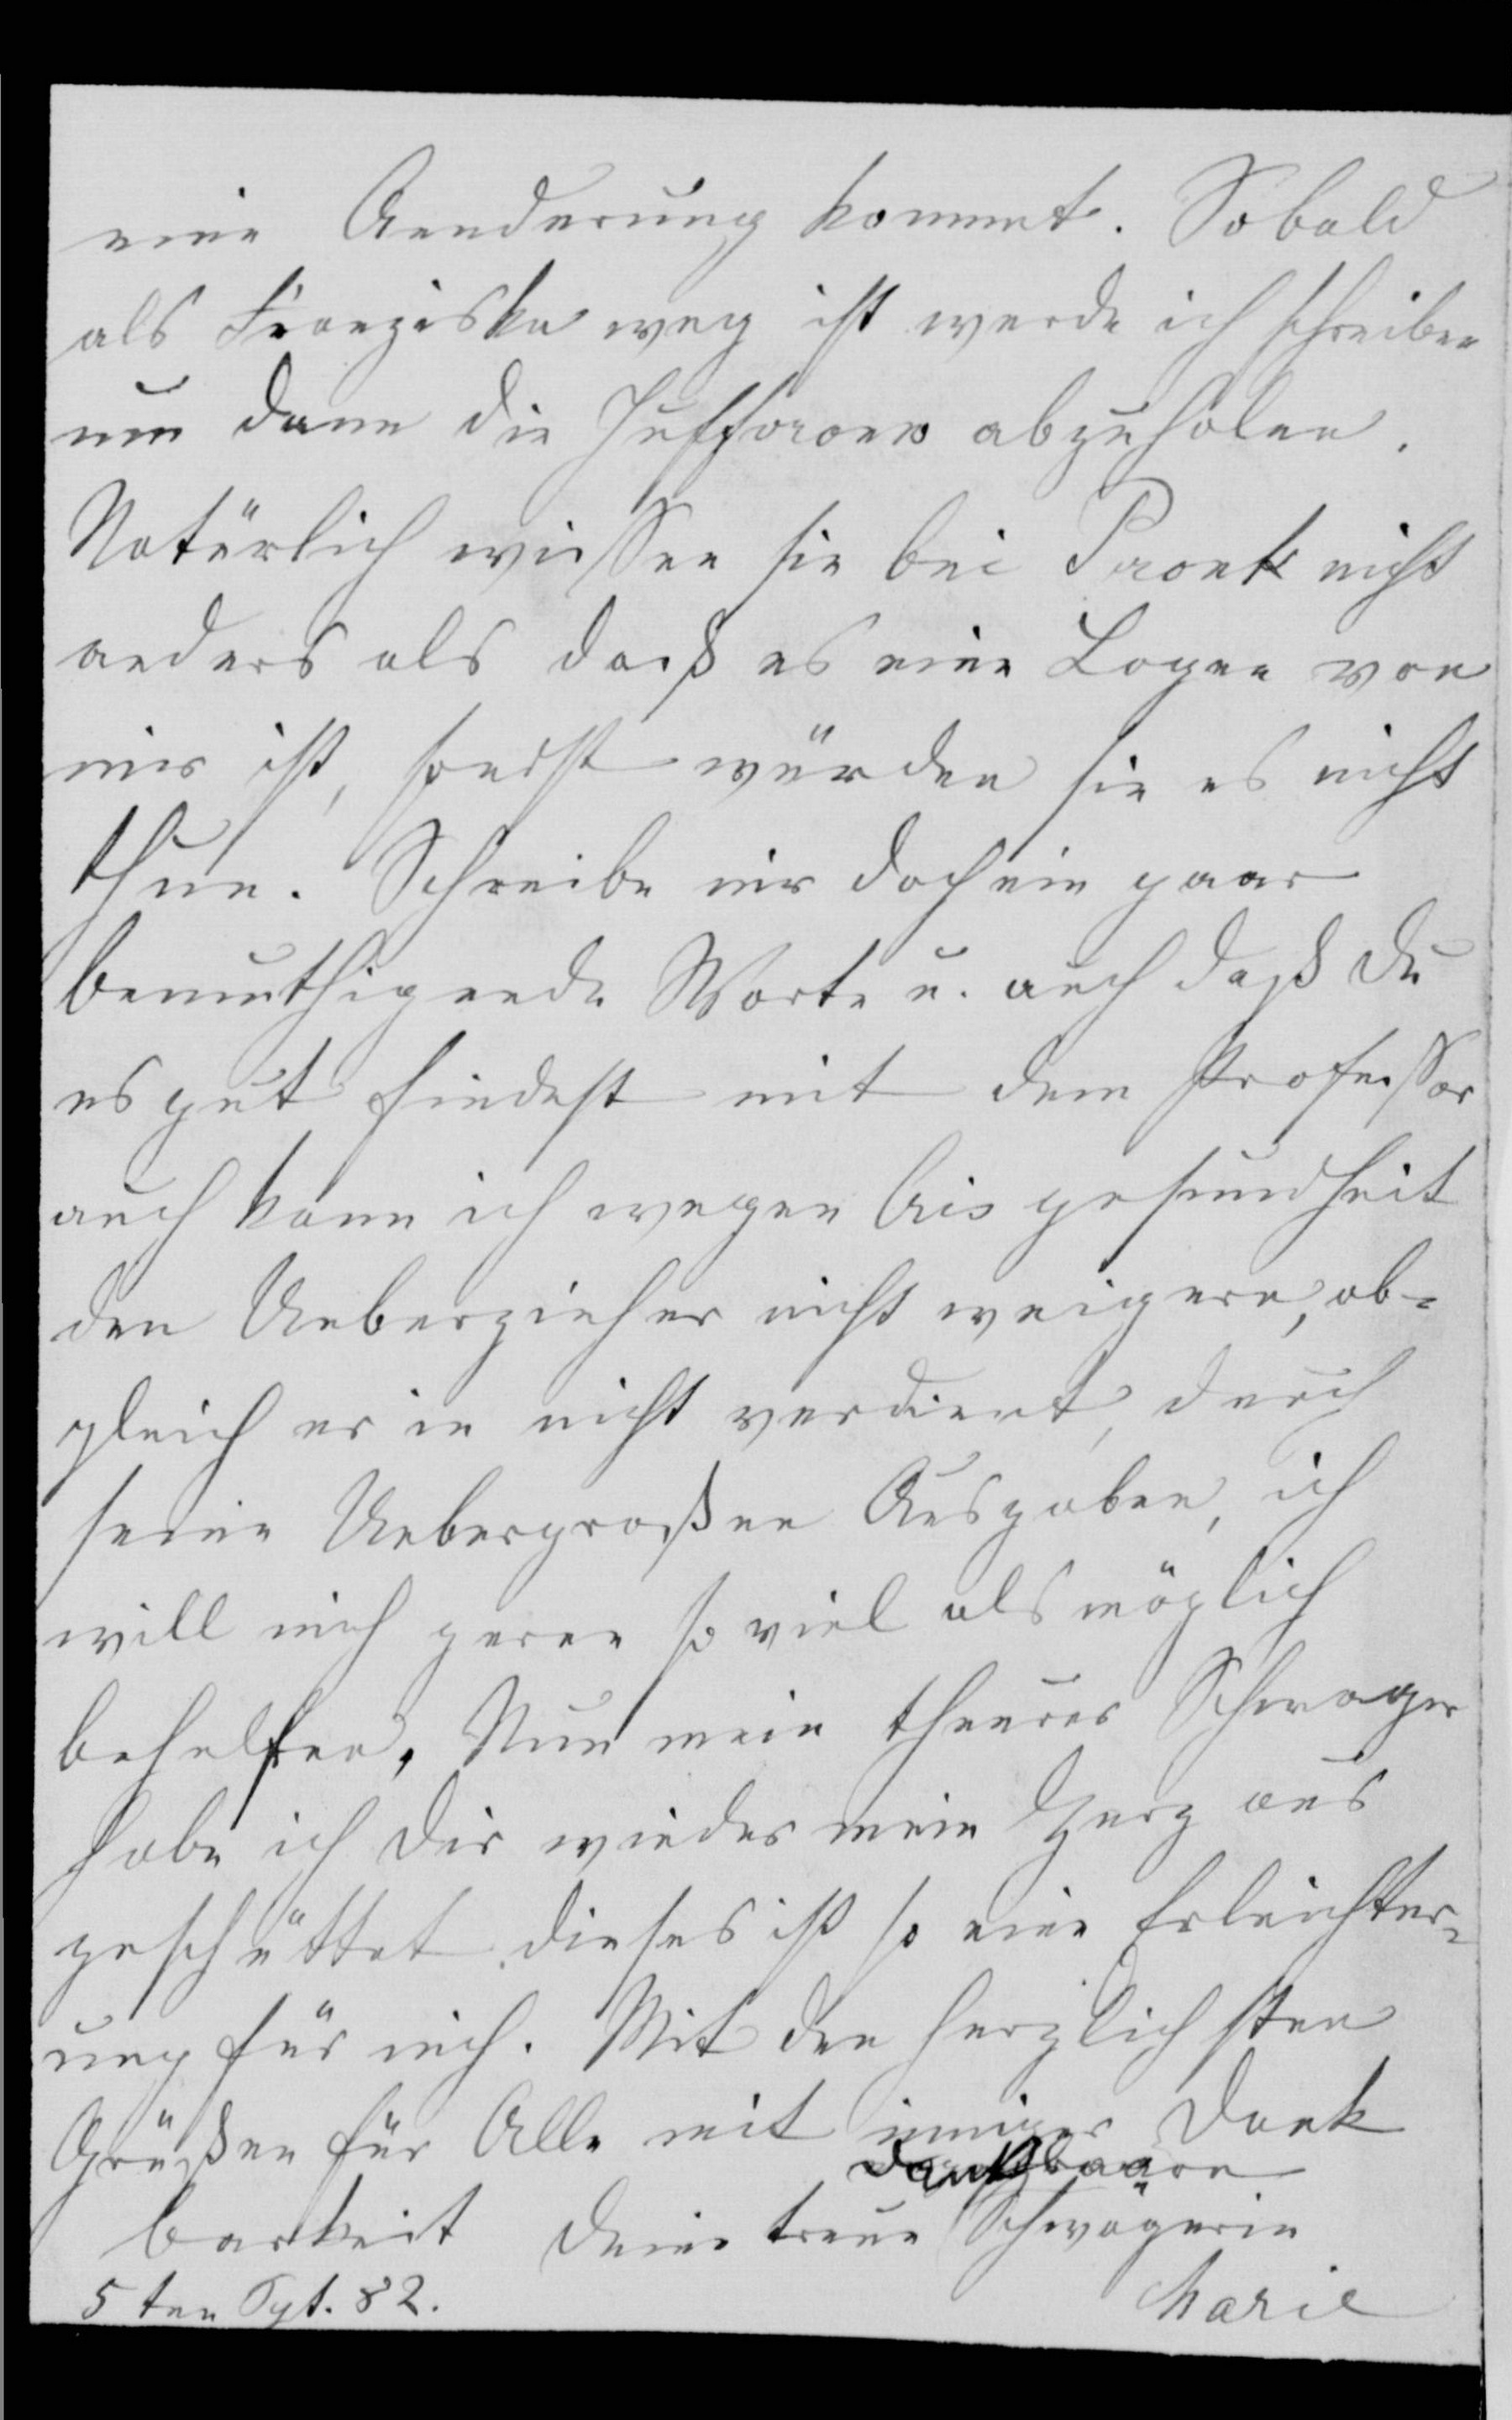 eine Aenderung kommt. Sobald
als Franziska weg ist werde ich schreiben
um dann die Juffrouw abzuholen.
Natürlich wissen sie bei Pronk nicht
anders als daß es eine Logee von
mir ist, sonst würden sie es nicht
thun. Schreibe mir doch ein paar
bemuthigende Worte u. auch daß Du
es gut findest mit dem Professor
auch kann ich wegen Cris gesundheit
den Ueberzieher nicht weigern, ob-
gleich er in nicht verdient, durch
seine Uebergroßen Ausgaben, ich
will mich gerne so viel als möglich
behelfen. Nun mein theurer Schwager
habe ich Dir wieder mein Herz aus
geschüttet dieses ist so eine Erleichter-
ung für mich. Mit den herzlichsten
Grüßen für Alle mit inniger Dank
barkeit Deine treue Schwägerin
5ten Spt. 82. Marie